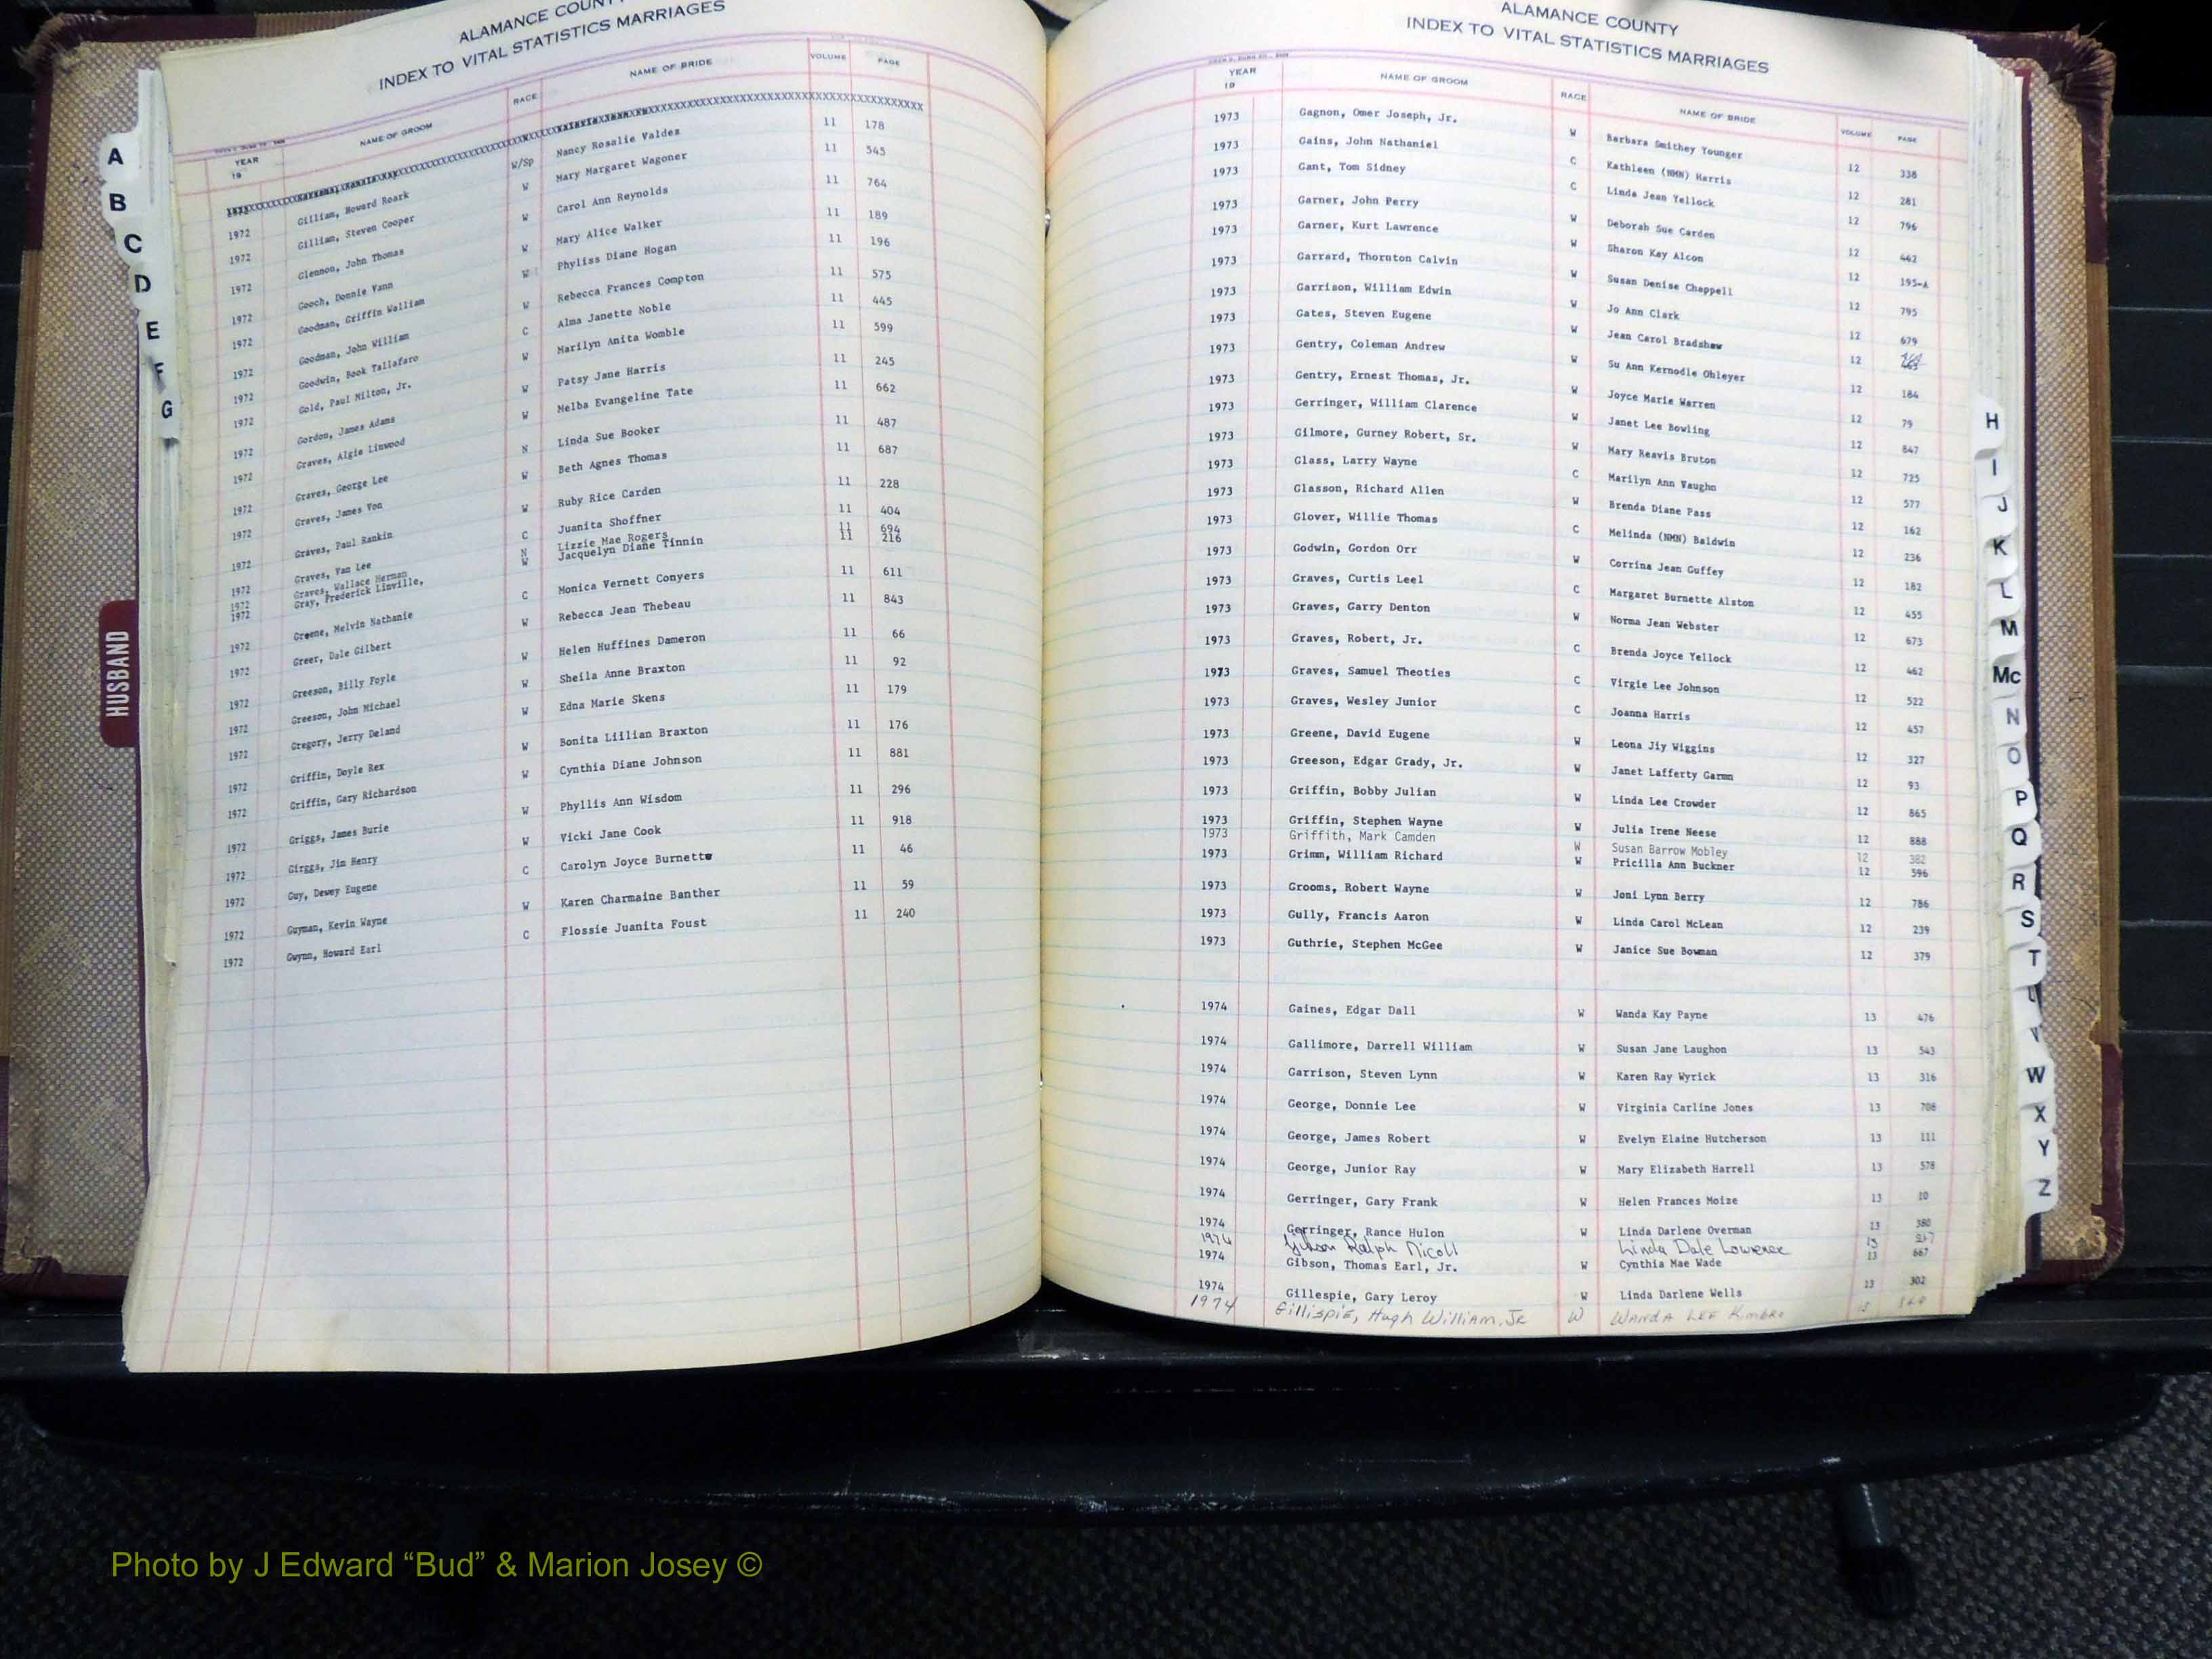 ALAMANCE COUNTY
INDEX TO VITAL STATISTICS MARRIAGES
YEAR 19 NAME OF GROOM RACE NAME OF BRIDE VOLUME PAGE
1972 Gilliam, Howard Roark W/Sp Nancy Rosalie Valdez 11 178
1972 Gilliam, Steven Cooper W Mary Margaret Wagoner 11 545
1972 Glennon, John Thomas W Carol Ann Reynolds 11 764
1972 Gooch, Donnie Vann W Mary Alice Walker 11 189
1972 Goodman, Griffin Walliam W Phyliss Diane Hogan 11 196
1972 Goodman, John William W Rebecca Frances Compton 11 575
1972 Goodwin, Book Tallafaro C Alma Janette Noble 11 445
1972 Gold, Paul Milton, Jr. W Marilyn Anita Womble 11 599
1972 Gordon, James Adams W Patsy Jane Harris 11 245
1972 Graves, Algie Linwood W Melba Evangeline Tate 11 662
1972 Graves, George Lee N Linda Sue Booker 11 487
1972 Graves, James Von W Beth Agnes Thomas 11 687
1972 Graves, Paul Rankin W Ruby Rice Carden 11 228
1972 Graves, Van Lee C Juanita Shoffner 11 404
1972 Graves, Wallace Herman N Lizzie Mae Rogers 11 694
1972 Gray, Frederick Linville, W Jacquelyn Diane Tinnin 11 216
1972 Greene, Melvin Nathanie C Monica Vernett Conyers 11 611
1972 Greer, Dale Gilbert W Rebecca Jean Thebeau 11 843
1972 Greeson, Billy Foyle W Helen Huffines Dameron 11 66
1972 Greeson, John Michael W Sheila Anne Braxton 11 92
1972 Gregory, Jerry Deland W Edna Marie Skens 11 179
1972 Griffin, Doyle Rex W Bonita Lillian Braxton 11 176
1972 Griffin, Gary Richardson W Cynthia Diane Johnson 11 881
1972 Griggs, James Burie W Phyllis Ann Wisdom 11 296
1972 Girggs, Jim Henry W Vicki Jane Cook 11 918
1972 Guy, Dewey Eugene C Carolyn Joyce Burnette 11 46
1972 Guyman, Kevin Wayne W Karen Charmaine Banther 11 59
1972 Gwynn, Howard Earl C Flossie Juanita Foust 11 240
A
B
C
D
E
F
G
HUSBAND
ALAMANCE COUNTY
INDEX TO VITAL STATISTICS MARRIAGES
YEAR 19 NAME OF GROOM RACE NAME OF BRIDE VOLUME PAGE
1973 Gagnon, Omer Joseph, Jr. W Barbara Smithey Younger 12 338
1973 Gains, John Nathaniel C Kathleen (NMN) Harris 12 281
1973 Gant, Tom Sidney C Linda Jean Yellock 12 796
1973 Garner, John Perry W Deborah Sue Carden 12 442
1973 Garner, Kurt Lawrence W Sharon Kay Alcon 12 195-A
1973 Garrard, Thornton Calvin W Susan Denise Chappell 12 795
1973 Garrison, William Edwin W Jo Ann Clark 12 679
1973 Gates, Steven Eugene W Jean Carol Bradshaw 12
1973 Gentry, Coleman Andrew W Su Ann Kernodle Ohleyer 12 184
1973 Gentry, Ernest Thomas, Jr. W Joyce Marie Warren 12 79
1973 Gerringer, William Clarence W Janet Lee Bowling 12 847
1973 Gilmore, Gurney Robert, Sr. W Mary Reavis Bruton 12 725
1973 Glass, Larry Wayne C Marilyn Ann Vaughn 12 577
1973 Glasson, Richard Allen W Brenda Diane Pass 12 162
1973 Glover, Willie Thomas C Melinda (NMN) Baldwin 12 236
1973 Godwin, Gordon Orr W Corrina Jean Guffey 12 182
1973 Graves, Curtis Leel C Margaret Burnette Alston 12 455
1973 Graves, Garry Denton W Norma Jean Webster 12 673
1973 Graves, Robert, Jr. C Brenda Joyce Yellock 12 462
1973 Graves, Samuel Theoties C Virgie Lee Johnson 12 522
1973 Graves, Wesley Junior C Joanna Harris 12 457
1973 Greene, David Eugene W Leona Jiy Wiggins 12 327
1973 Greeson, Edgar Grady, Jr. W Janet Lafferty Garmn 12 93
1973 Griffin, Bobby Julian W Linda Lee Crowder 12 865
1973 Griffin, Stephen Wayne W Julia Irene Neese 12 888
1973 Griffith, Mark Camden W Susan Barrow Mobley 12 382
1973 Grimm, William Richard W Pricilla Ann Buckner 12 596
1973 Grooms, Robert Wayne W Joni Lynn Berry 12 786
1973 Gully, Francis Aaron W Linda Carol McLean 12 239
1973 Guthrie, Stephen McGee W Janice Sue Bowman 12 379
1974 Gaines, Edgar Dall W Wanda Kay Payne 13 476
1974 Gallimore, Darrell William W Susan Jane Laughon 13 543
1974 Garrison, Steven Lynn W Karen Ray Wyrick 13 316
1974 George, Donnie Lee W Virginia Carline Jones 13 708
1974 George, James Robert W Evelyn Elaine Hutcherson 13 111
1974 George, Junior Ray W Mary Elizabeth Harrell 13 578
1974 Gerringer, Gary Frank W Helen Frances Moize 13 10
1974 Gerringer, Rance Hulon W Linda Darlene Overman 13 380
1974 Ralph Nicoll Linda Dale Lowrence 13
1974 Gibson, Thomas Earl, Jr. W Cynthia Mae Wade 13 667
1974 Gillespie, Gary Leroy W Linda Darlene Wells 13 302
1974 Gillispie, Hugh William, Jr W Wanda Lee Kimbro 13
H
I
J
K
L
M
Mc
N
O
P
Q
R
S
T
U
V
W
X
Y
Z
Photo by J Edward “Bud” & Marion Josey ©